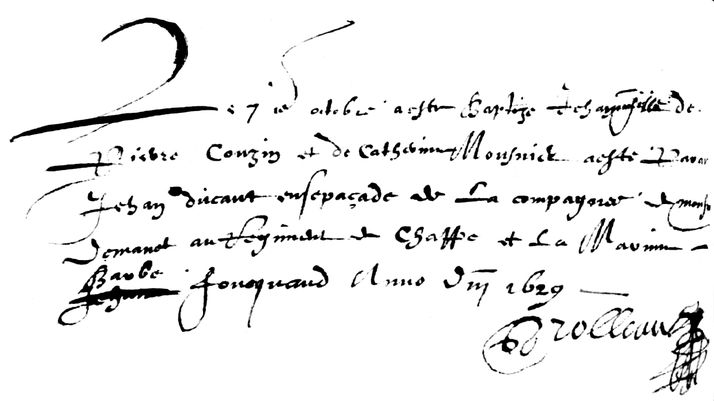 Le 7 ie octobre aeste Baptize Jehan fille de
Pierre Couzin et de Catherine Mousnier aeste Parain
Jehan ducaut ensepaçade de La compagnee de mons
Demanet au Regiment de Chappe et La Marinne
Barbe Foucquaud Anno Dm 1629
Drolleau